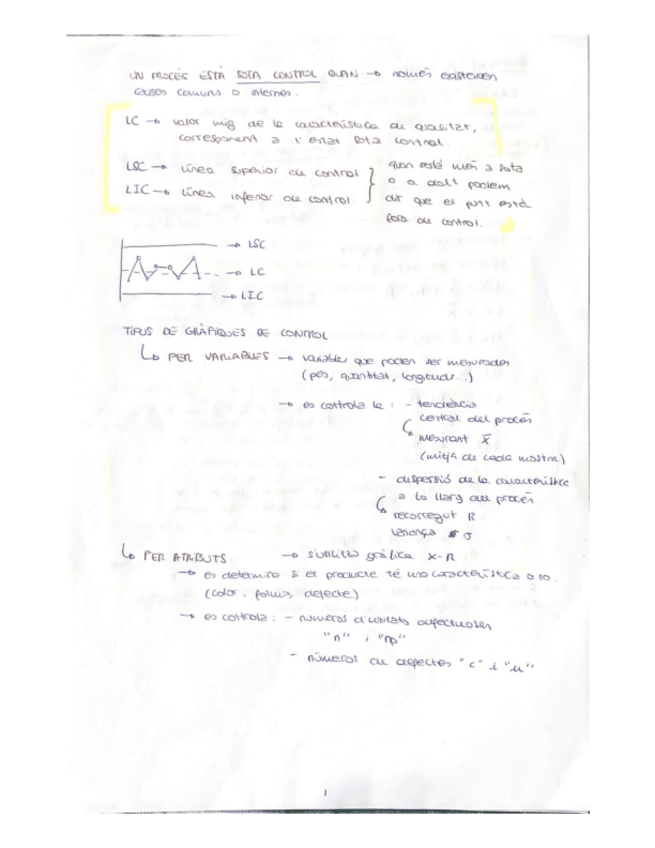 UN PROCÉS ESTÀ SOTA CONTROL QUAN → només existeixen
causes comuns o internes.
LC → valor mig de la característica de qualitat,
corresponent a l'estat sota control.
LSC → línea superior de control
LIC → línea inferior de control
quan està més a sota
o a dalt podem
dir que el punt està
fora de control.
→ LSC
→ LC
→ LIC
TIPUS DE GRÀFIQUES DE CONTROL
PER VARIABLES → variables que poden ser mesurades
(pes, quantitat, longitud...)
→ es controla la : - tendència
central del procés
mesurant x̄
(mitja de cada mostra)
- dispersió de la característica
a lo llarg del procés
recorregut R
σ
→ s'utilitza gràfica X-R
PER ATRIBUTS
→ es determina si el producte té una característica o no.
(color, forma, defecte)
→ es controla : - números d'unitats defectuoses
"n" i "np"
- números de defectes "c" i "u"
1